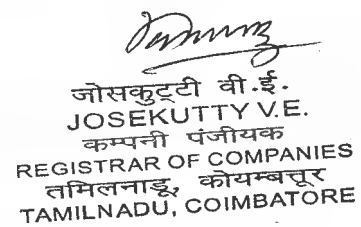 जोसकुट्टी वी.ई.
JOSEKUTTY V.E.
कम्पनी पंजीयक
REGISTRAR OF COMPANIES
तमिलनाडू, कोयम्बत्तूर
TAMILNADU, COIMBATORE